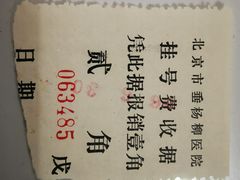 北京市垂杨柳医院
挂号费收据
凭此据报销壹角
贰角
063485 戊
日期